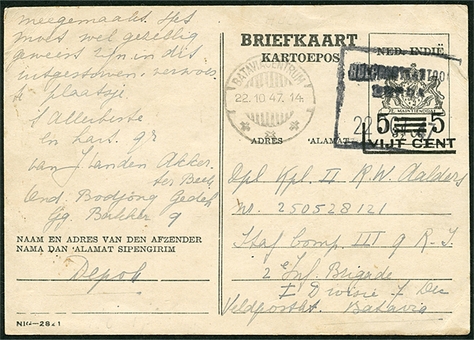 meegemaakt. Het
moet wel gezellig
geweest zijn in dit
uitgestorven
plaatsje
't Allerbeste
en hart. gr.
van J. van den Akker
ter Beek
Ond. Bodjong Gedeh
Gg. Bakker 9
NAAM EN ADRES VAN DEN AFZENDER
NAMA DAN 'ALAMAT SIPENGIRIM
Depok
NIG-2821
BRIEFKAART
KARTOEPOS
BATAVIA-CENTRUM
22.10.47.14
NED. INDIË
JE MAINTIENDRAI
5 5
VIJF CENT
22
ADRES 'ALAMAT
Dpl Kpl II R.W. Aalders
nr. 250528121
Staf Comp. III 9 R.I.
2e Inf. Brigade
I Divisie 7 Dec
Veldpost Batavia